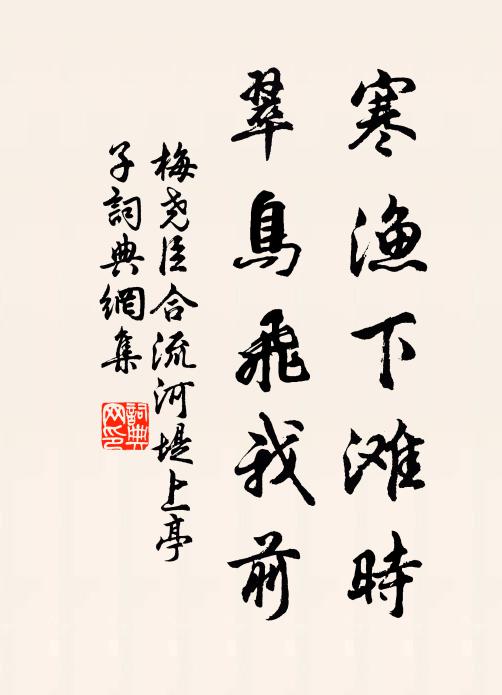 寒渔下滩時
翠鳥飛我前
梅尧臣合流河堤上亭
子詞典網集
詞典网印